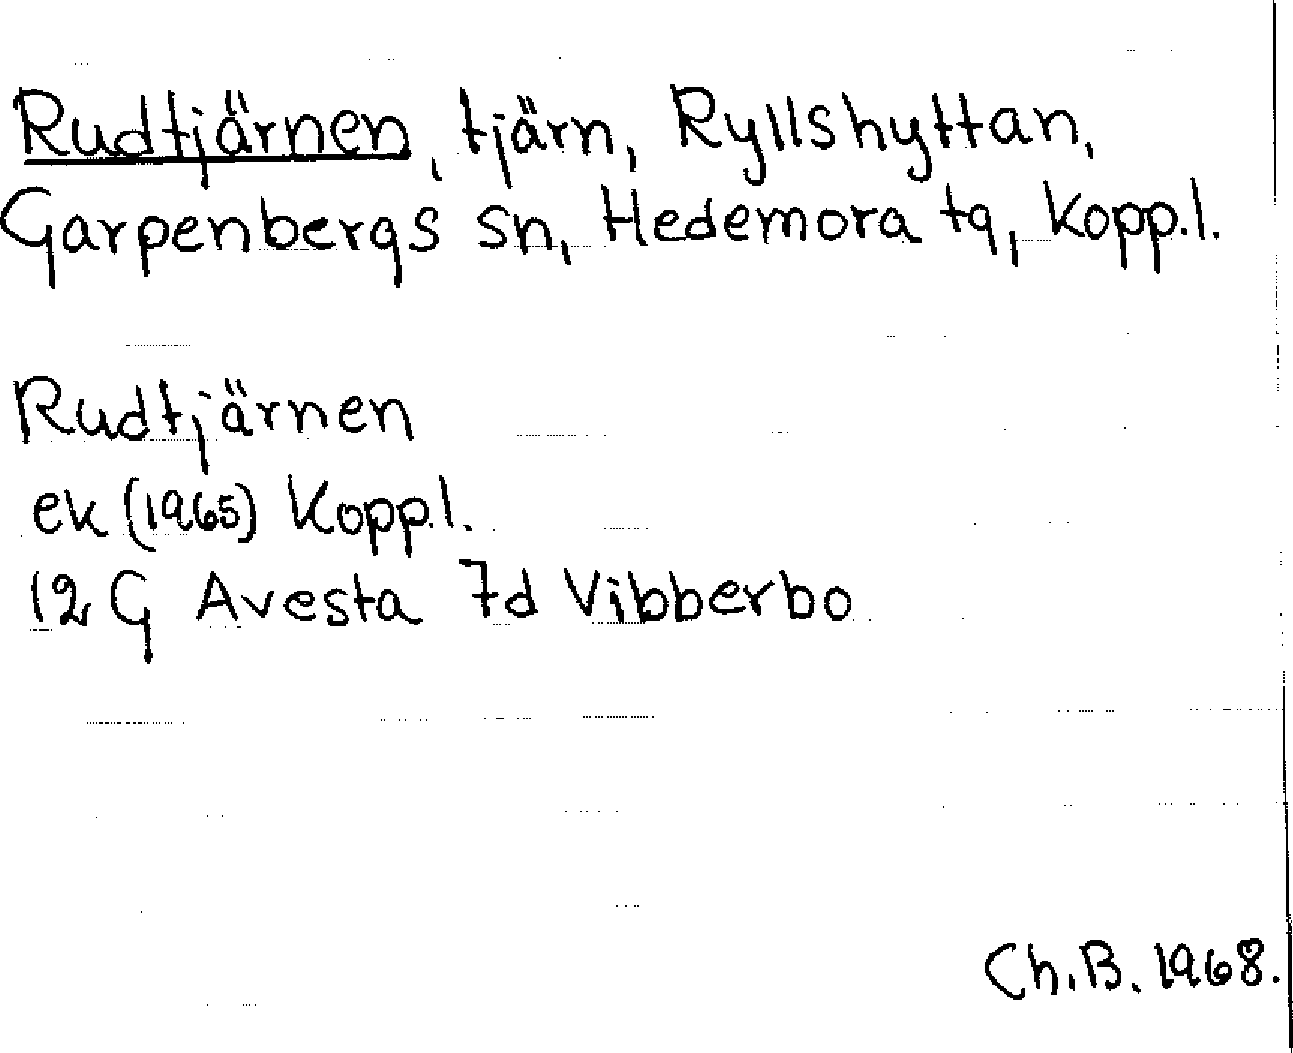 Rudtjärnen, tjärn, Ryllshyttan,
Garpenbergs sn, Hedemora tg, Kopp.l.
Rudtjärnen
ek (1965) Kopp.l.
12 G Avesta 7d Vibberbo
Ch.B. 1968.